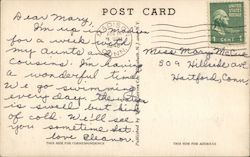 POST CARD
Dear Mary,
I'm up in Madison
for a week with
my aunts and
cousins. I'm having
a wonderful time.
We go swimming
every day. The water
is swell but kind
of cold. We'll see
you sometime. Lots
love Eleanor
Miss Mary
509 Hillside Ave
Hartford, Conn.
1 CENT 1
THIS SIDE FOR CORRESPONDENCE
THIS SIDE FOR ADDRESS